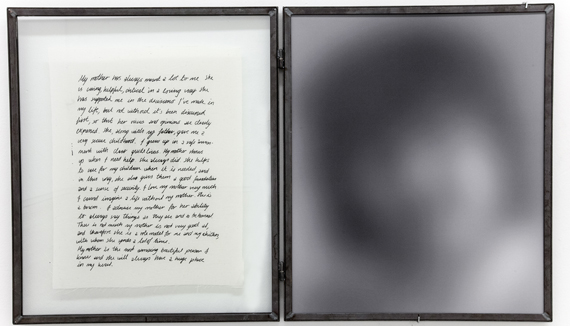 My mother has always meant a lot to me. She
is caring, helpful, distinct in a loving way. She
has supported me in the decisions I've made in
my life, but not without it's been discussed
first, so that her views and opinions are clearly
expressed. She, along with my father, gave me a
very secure childhood. I grew up in a safe
with clear guidelines. My mother shows
up when I need help. She always did. She helps
to care for my children when it is needed, and
in this way, she also gives them a good foundation
and a sense of security. I love my mother very much
I cannot imagine a life without my mother. This is
a dream. I admire my mother for her ability
to always say things as they are and to be honest.
There is not much my mother is not very good at,
and therefore she is a role model for me and my children,
with whom she spends a lot of time.
My mother is the most amazing beautiful person I
know and she will always have a huge place
in my heart.